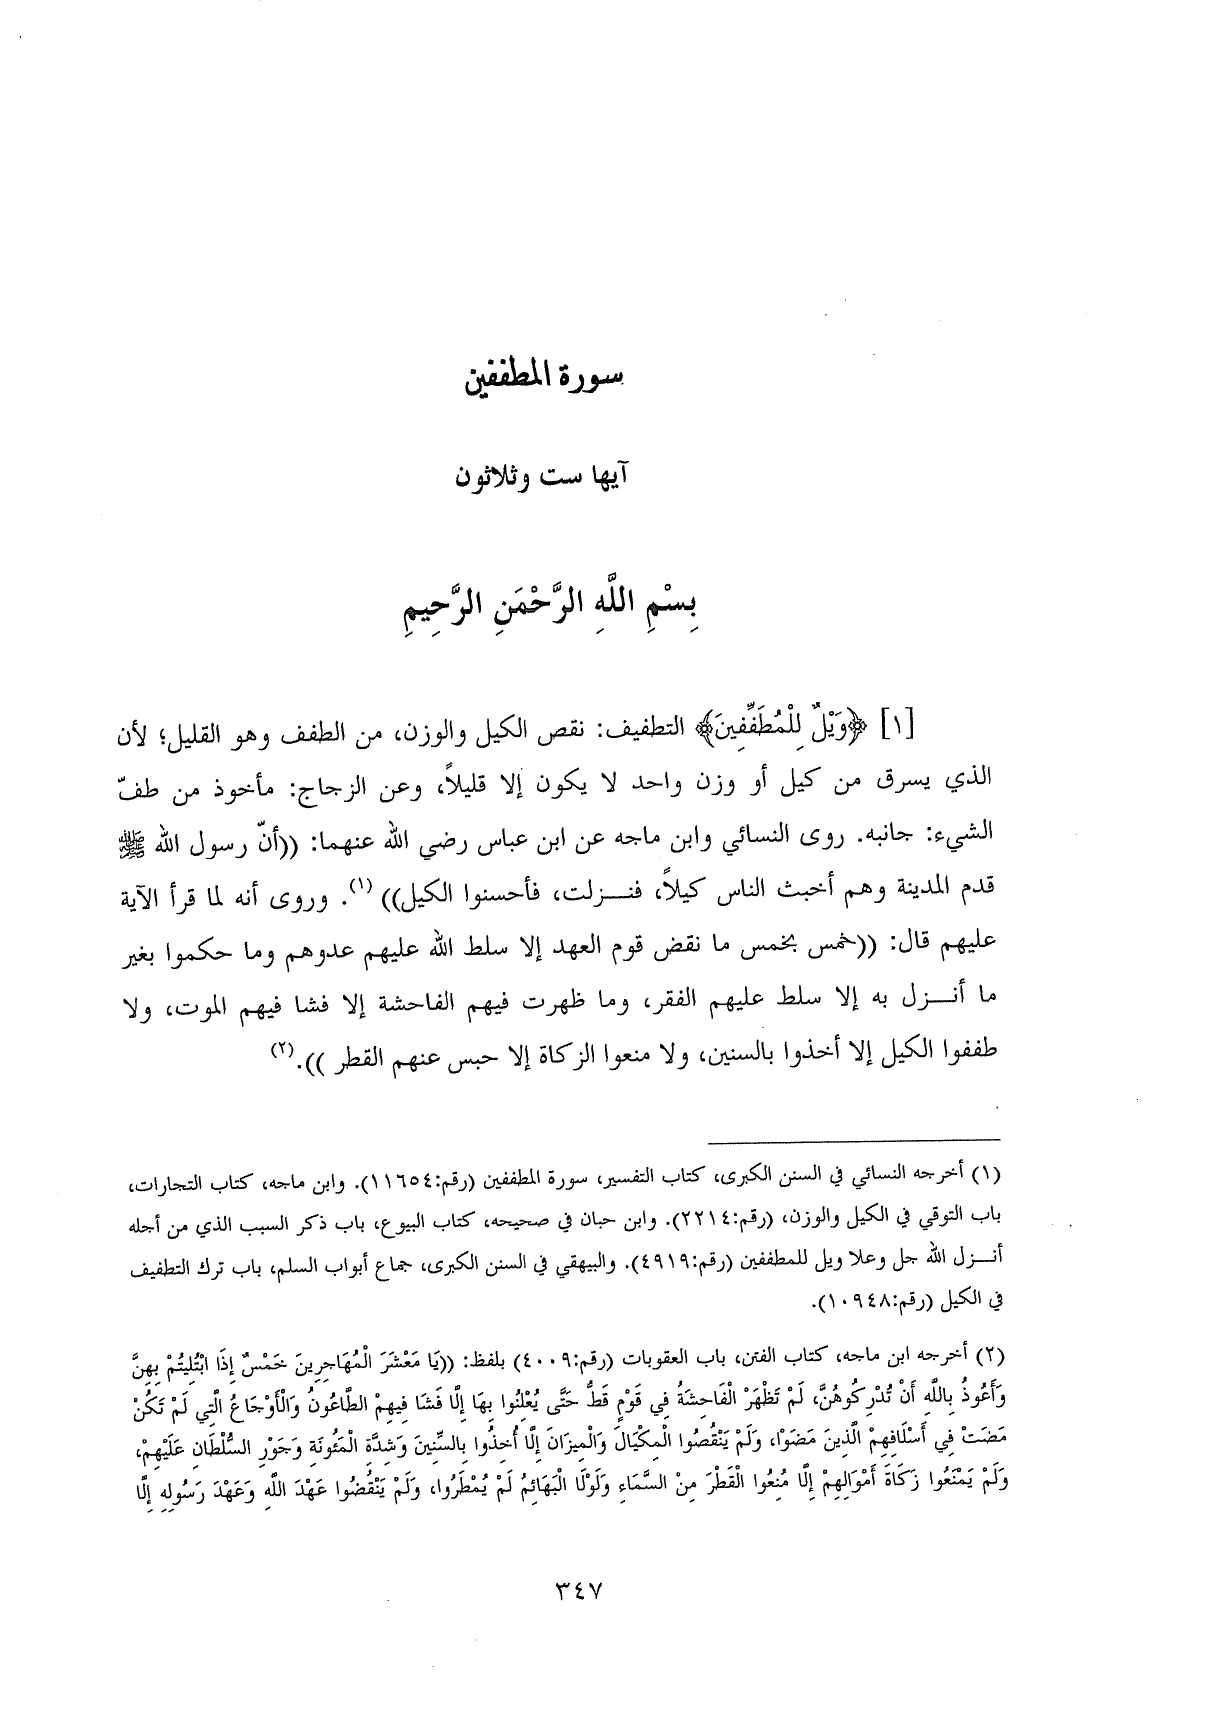 سورة المطففين
آيها ست وثلاثون
بِسْمِ اللَّهِ الرَّحْمَنِ الرَّحِيمِ
[١] ﴿وَيْلٌ لِلْمُطَفِّفِينَ﴾ التطفيف: نقص الكيل والوزن، من الطفف وهو القليل؛ لأن
الذي يسرق من كيل أو وزن واحد لا يكون إلا قليلاً، وعن الزجاج: مأخوذ من طفّ
الشيء: جانبه. روى النسائي وابن ماجه عن ابن عباس رضي الله عنهما: ((أنّ رسول الله ﷺ
قدم المدينة وهم أخبث الناس كيلاً، فنـزلت، فأحسنوا الكيل))(١). وروى أنه لما قرأ الآية
عليهم قال: ((خمس بخمس ما نقض قوم العهد إلا سلط الله عليهم عدوهم وما حكموا بغير
ما أنـزل به إلا سلط عليهم الفقر، وما ظهرت فيهم الفاحشة إلا فشا فيهم الموت، ولا
طففوا الكيل إلا أخذوا بالسنين، ولا منعوا الزكاة إلا حبس عنهم القطر )).(٢)
(١) أخرجه النسائي في السنن الكبرى، كتاب التفسير، سورة المطففين (رقم:١١٦٥٤). وابن ماجه، كتاب التجارات،
باب التوقي في الكيل والوزن، (رقم:٢٢١٤). وابن حبان في صحيحه، كتاب البيوع، باب ذكر السبب الذي من أجله
أنـزل الله جل وعلا ويل للمطففين (رقم:٤٩١٩). والبيهقي في السنن الكبرى، جماع أبواب السلم، باب ترك التطفيف
في الكيل (رقم:١٠٩٤٨).
(٢) أخرجه ابن ماجه، كتاب الفتن، باب العقوبات (رقم:٤٠٠٩) بلفظ: ((يَا مَعْشَرَ الْمُهَاجِرِينَ خَمْسٌ إِذَا ابْتُلِيتُمْ بِهِنَّ
وَأَعُوذُ بِاللَّهِ أَنْ تُدْرِكُوهُنَّ، لَمْ تَظْهَرْ الْفَاحِشَةُ فِي قَوْمٍ قَطُّ حَتَّى يُعْلِنُوا بِهَا إِلَّا فَشَا فِيهِمْ الطَّاعُونُ وَالْأَوْجَاعُ الَّتِي لَمْ تَكُنْ
مَضَتْ فِي أَسْلَافِهِمْ الَّذِينَ مَضَوْا، وَلَمْ يَنْقُصُوا الْمِكْيَالَ وَالْمِيزَانَ إِلَّا أُخِذُوا بِالسِّنِينَ وَشِدَّةِ الْمَئُونَةِ وَجَوْرِ السُّلْطَانِ عَلَيْهِمْ،
وَلَمْ يَمْنَعُوا زَكَاةَ أَمْوَالِهِمْ إِلَّا مُنِعُوا الْقَطْرَ مِنْ السَّمَاءِ وَلَوْلَا الْبَهَائِمُ لَمْ يُمْطَرُوا، وَلَمْ يَنْقُضُوا عَهْدَ اللَّهِ وَعَهْدَ رَسُولِهِ إِلَّا
٣٤٧